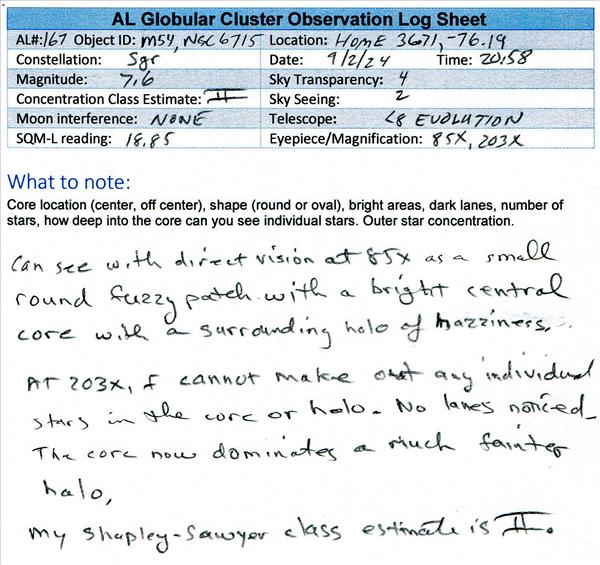 AL Globular Cluster Observation Log Sheet
AL#:167 Object ID: M54, NGC 6715 Location: HOME 3671,-76.19
Constellation: Sgr Date: 9/2/24 Time: 20:58
Magnitude: 7.6 Sky Transparency: 4
Concentration Class Estimate: II Sky Seeing: 2
Moon interference: NONE Telescope: C8 EVOLUTION
SQM-L reading: 18.85 Eyepiece/Magnification: 85X, 203X
What to note:
Core location (center, off center), shape (round or oval), bright areas, dark lanes, number of
stars, how deep into the core can you see individual stars. Outer star concentration.
Can see with direct vision at 85x as a small
round fuzzy patch with a bright central
core with a surrounding halo of hazziness.
AT 203x, I cannot make out any individual
stars in the core or halo. No lanes noticed.
The core now dominates a much fainter
halo,
My Shapley-Sawyer class estimate is II.